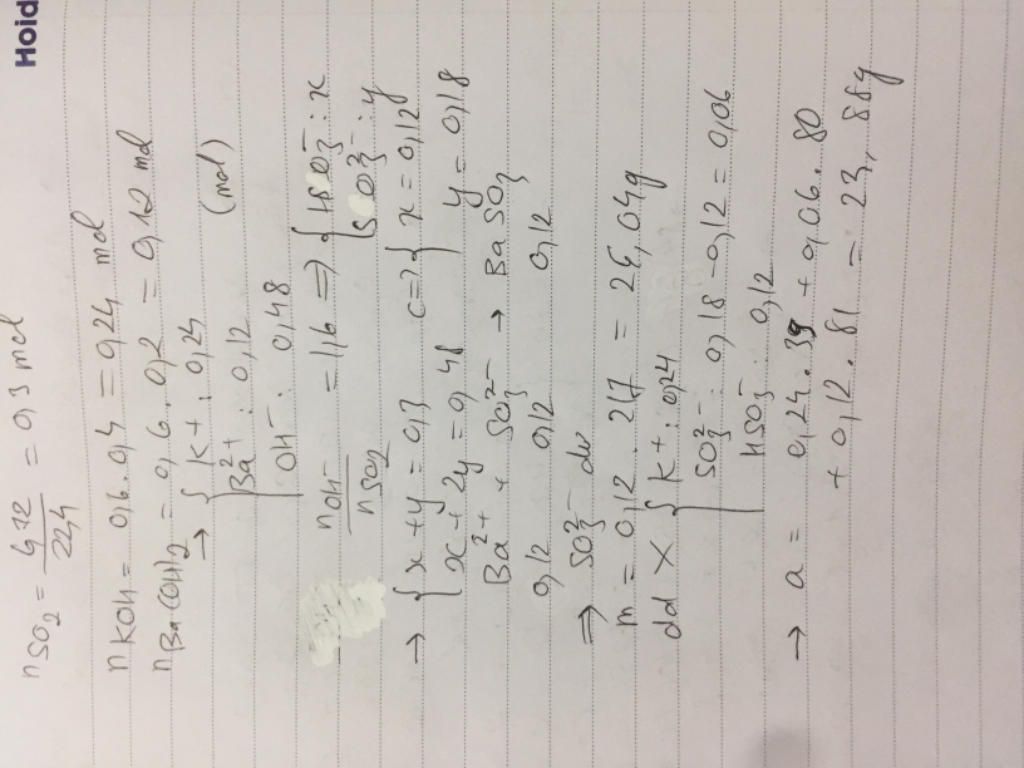 Hoid
nSO₂ = 6,72/22,4 = 0,3 mol
nKOH = 0,6.0,4 = 0,24 mol
nBa(OH)₂ = 0,6.0,2 = 0,12 mol
→ { K+ : 0,24 (mol)
Ba²⁺ : 0,12
OH⁻ : 0,48
nOH⁻/nSO₂ = 1,6 => { HSO₃⁻ : x
SO₃²⁻ : y
→ { x + y = 0,3 <=> { x = 0,12
x + 2y = 0,48 y = 0,18
Ba²⁺ + SO₃²⁻ → BaSO₃
0,12 0,12 0,12
=> SO₃²⁻ dư
m = 0,12 . 217 = 26,04g
dd X { K+ : 0,24
SO₃²⁻ : 0,18 - 0,12 = 0,06
HSO₃⁻ : 0,12
→ a = 0,24.39 + 0,06.80
+ 0,12.81 = 23,88g